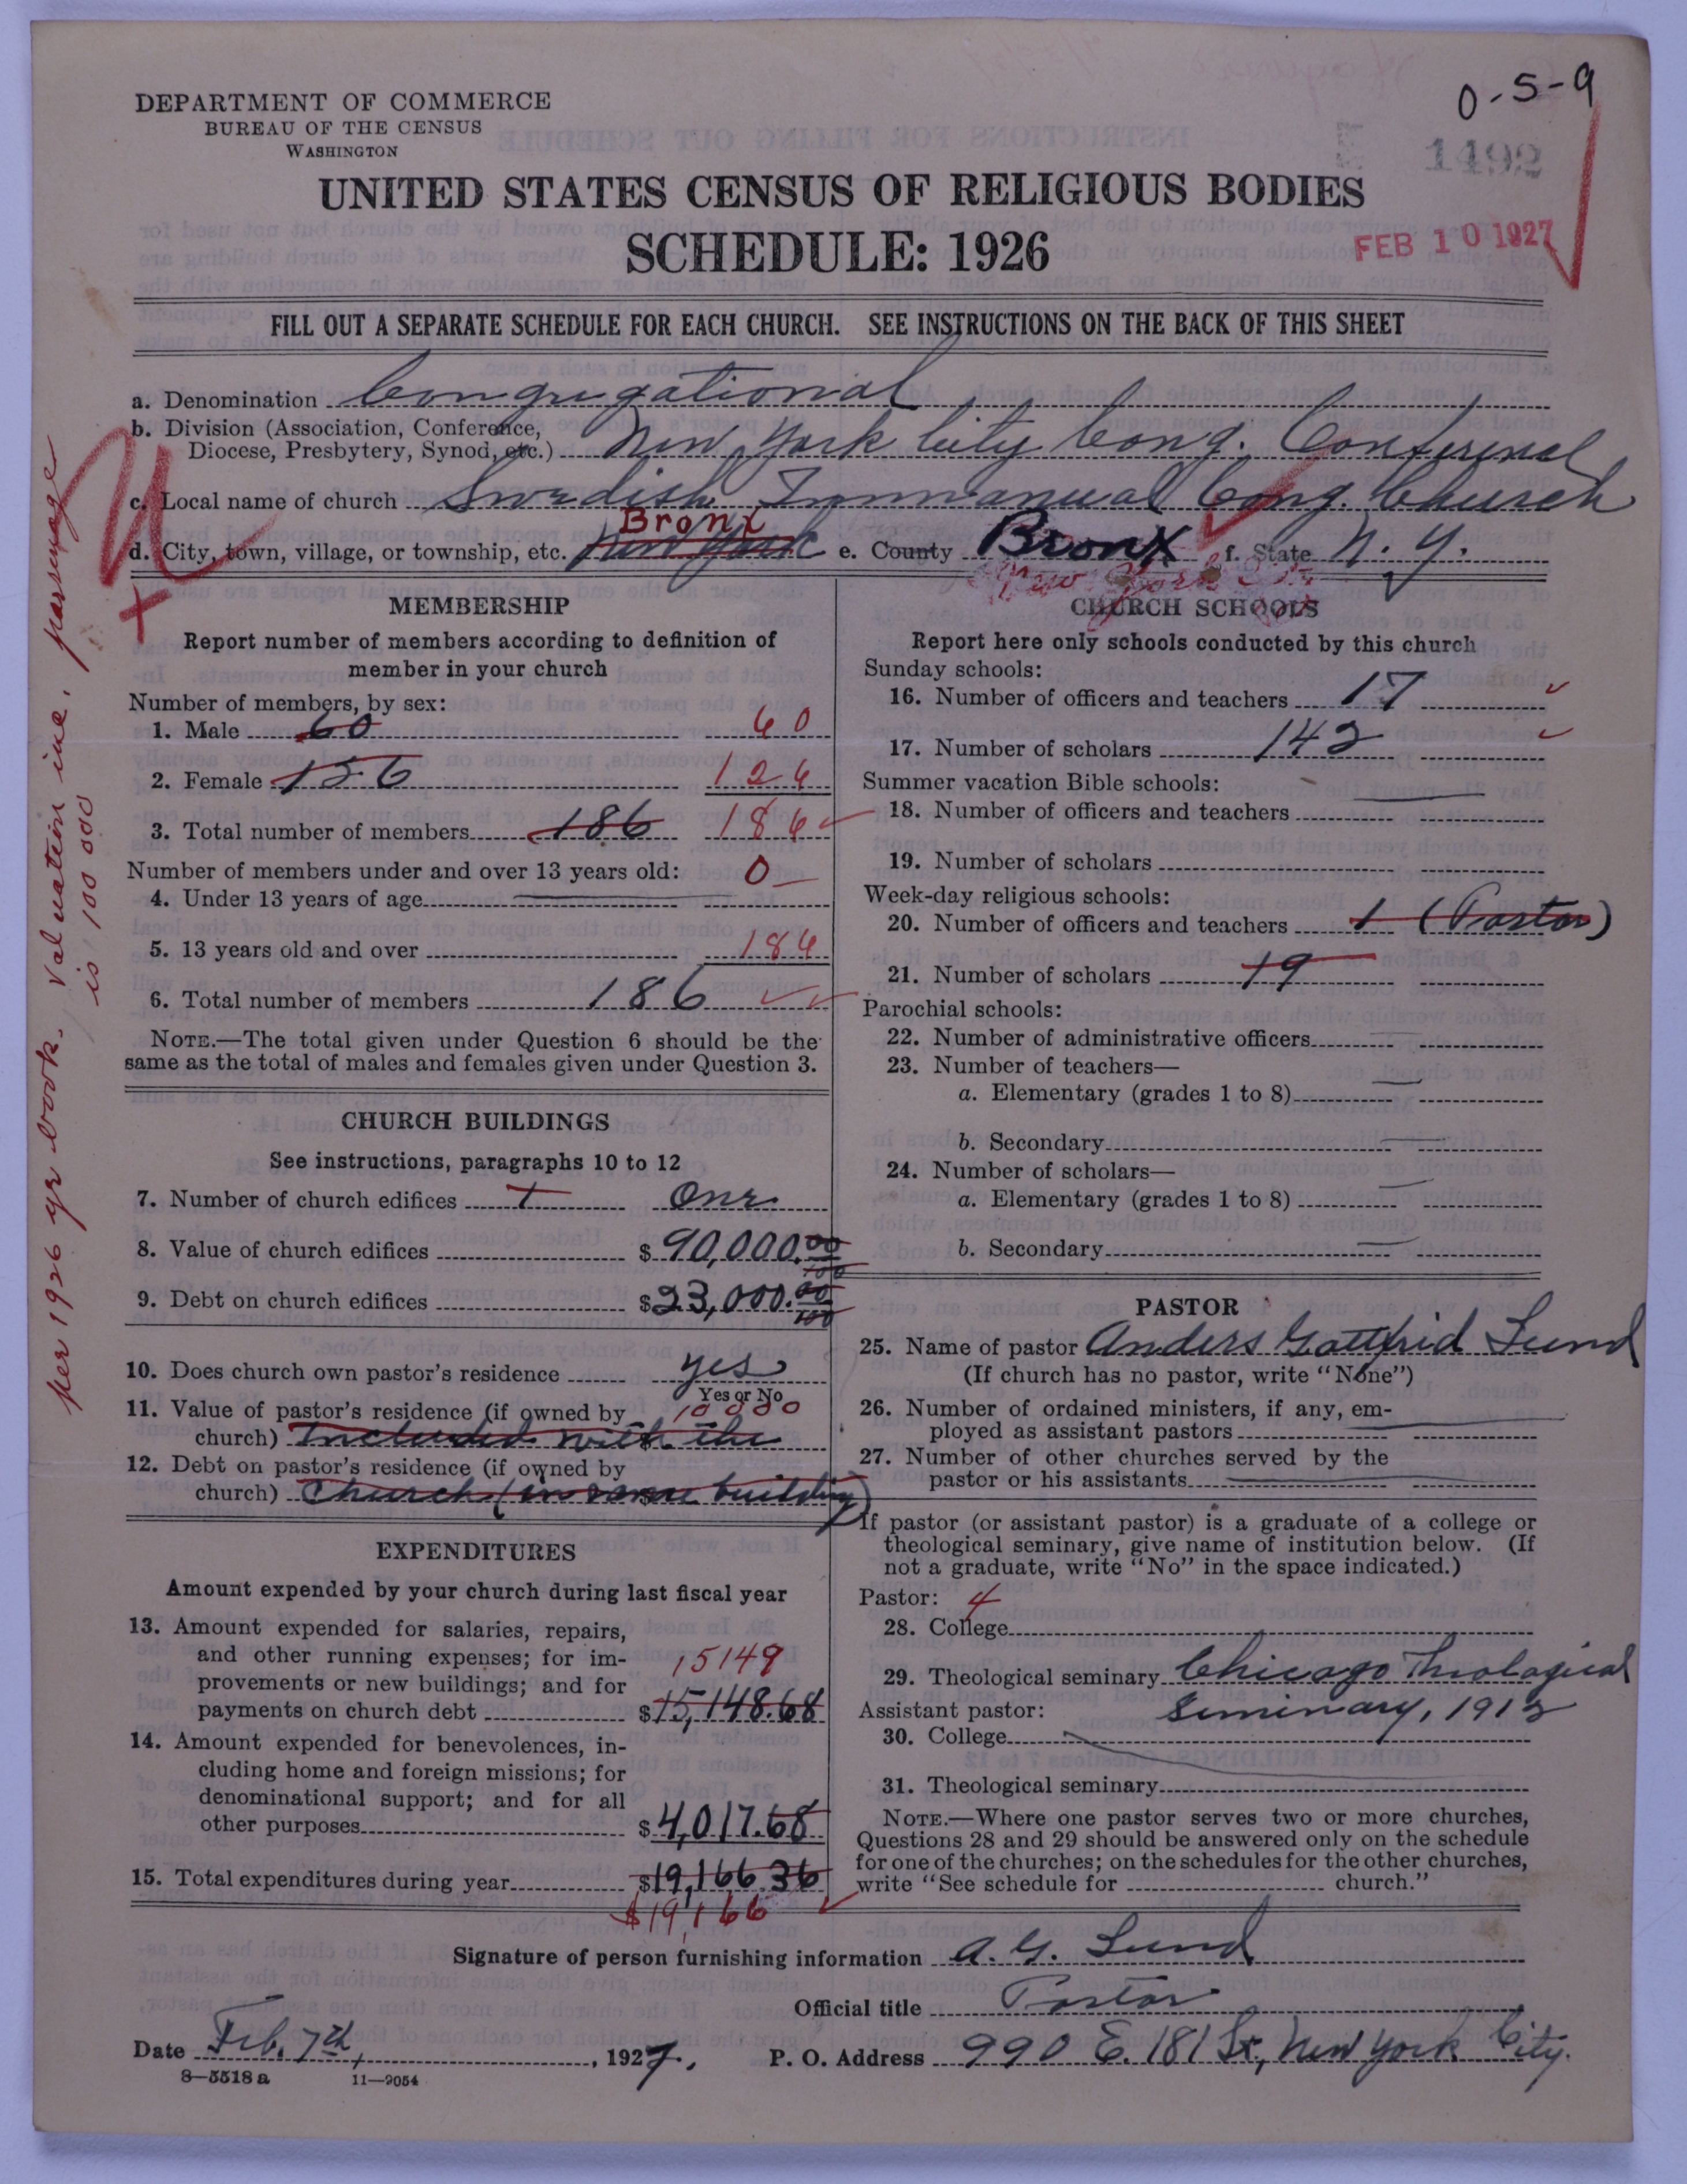 0-5-9
DEPARTMENT OF COMMERCE
BUREAU OF THE CENSUS
WASHINGTON
1492
UNITED STATES CENSUS OF RELIGIOUS BODIES
SCHEDULE: 1926
FEB 10 1927
FILL OUT A SEPARATE SCHEDULE FOR EACH CHURCH. SEE INSTRUCTIONS ON THE BACK OF THIS SHEET
a. Denomination Congregational
b. Division (Association, Conference,
Diocese, Presbytery, Synod, etc.) New York City Cong. Conference
c. Local name of church Swedish Immanuel Cong. Church
Bronx
d. City, town, village, or township, etc. New York e. County Bronx f. State N. Y.
New York
per 1926 yr book. Valuation incl. parsonage
is 100 000
MEMBERSHIP
Report number of members according to definition of
member in your church
Number of members, by sex:
1. Male 60 60
2. Female 126 126
3. Total number of members 186 186
Number of members under and over 13 years old: 0
4. Under 13 years of age
5. 13 years old and over 186
6. Total number of members 186
NOTE.—The total given under Question 6 should be the
same as the total of males and females given under Question 3.
CHURCH BUILDINGS
See instructions, paragraphs 10 to 12
7. Number of church edifices 1 One
8. Value of church edifices $90,000.00/100
9. Debt on church edifices $23,000.00/100
10. Does church own pastor's residence yes
Yes or No
11. Value of pastor's residence (if owned by 10000
church) Included with the
12. Debt on pastor's residence (if owned by
church) Church (in same building)
EXPENDITURES
Amount expended by your church during last fiscal year
13. Amount expended for salaries, repairs,
and other running expenses; for im- 15149
provements or new buildings; and for
payments on church debt $15,148.68
14. Amount expended for benevolences, in-
cluding home and foreign missions; for
denominational support; and for all
other purposes $4,017.68
15. Total expenditures during year $19,166.36
$19,166
CHURCH SCHOOLS
Report here only schools conducted by this church
Sunday schools:
16. Number of officers and teachers 17
17. Number of scholars 142
Summer vacation Bible schools:
18. Number of officers and teachers
19. Number of scholars
Week-day religious schools:
20. Number of officers and teachers 1 (Pastor)
21. Number of scholars 19
Parochial schools:
22. Number of administrative officers
23. Number of teachers—
a. Elementary (grades 1 to 8)
b. Secondary
24. Number of scholars—
a. Elementary (grades 1 to 8)
b. Secondary
PASTOR
25. Name of pastor Anders Gottfrid Lund
(If church has no pastor, write "None")
26. Number of ordained ministers, if any, em-
ployed as assistant pastors
27. Number of other churches served by the
pastor or his assistants
If pastor (or assistant pastor) is a graduate of a college or
theological seminary, give name of institution below. (If
not a graduate, write "No" in the space indicated.)
Pastor: 4
28. College
29. Theological seminary Chicago Theological
Assistant pastor: Seminary, 1912
30. College
31. Theological seminary
NOTE.—Where one pastor serves two or more churches,
Questions 28 and 29 should be answered only on the schedule
for one of the churches; on the schedules for the other churches,
write "See schedule for church."
Signature of person furnishing information A. G. Lund
Official title Pastor
Date Feb. 7th, 1927. P. O. Address 990 E. 181 St., New York City.
8—5518 a 11—9054